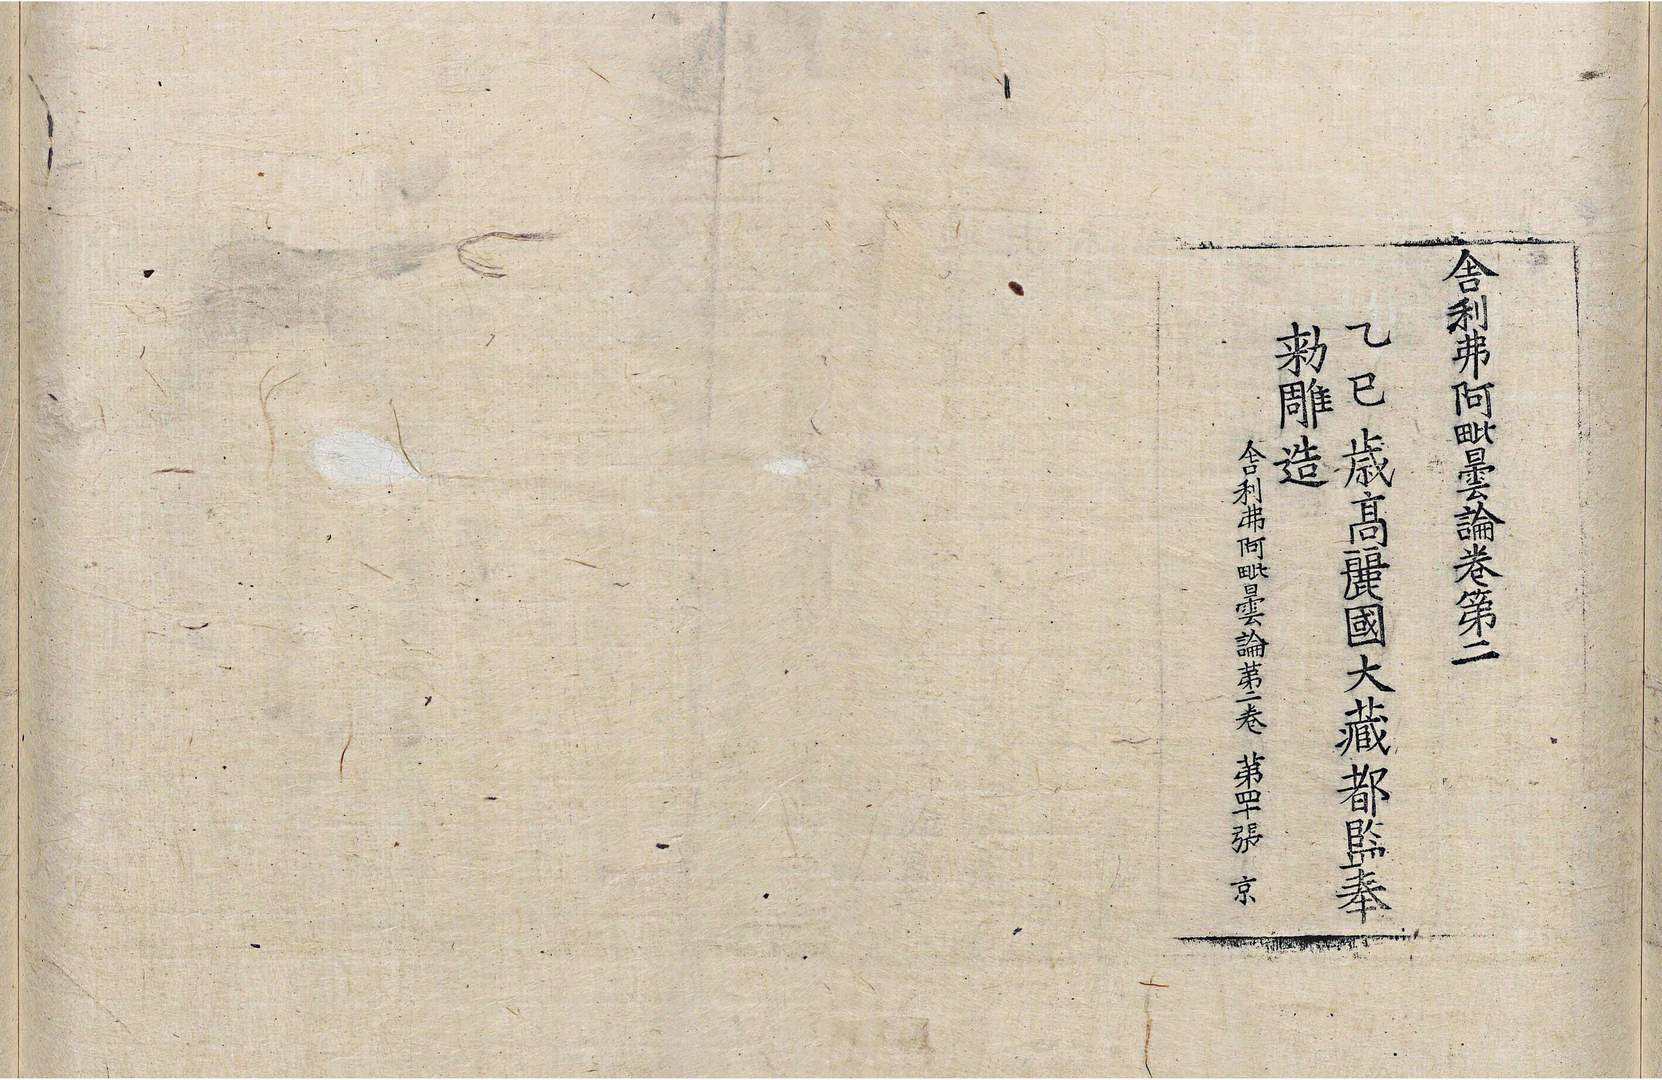 舍利弗阿毗曇論卷第二
乙巳歲高麗國大藏都監奉
勑雕造
舍利弗阿毗曇論第二卷 第四十張 京